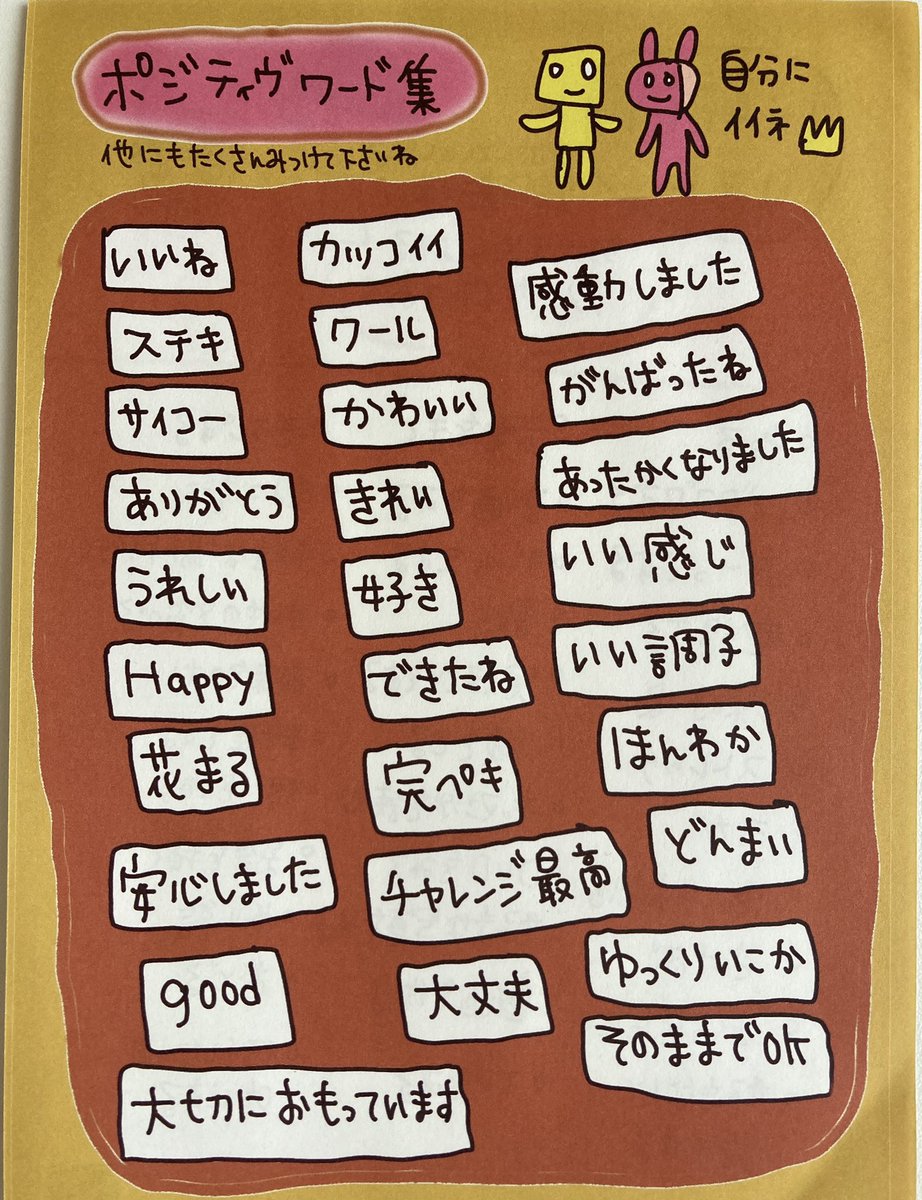 ポジティヴワード集
他にもたくさんみつけて下さいね
自分に
イイネ
いいね
ステキ
サイコー
ありがとう
うれしい
Happy
花まる
安心しました
good
大切におもっています
カッコイイ
ワール
かわいい
きれい
好き
できたね
完ペキ
チャレンジ最高
大丈夫
感動しました
がんばったね
あったかくなりました
いい感じ
いい調子
ほんわか
どんまい
ゆっくりいこか
そのままでOK